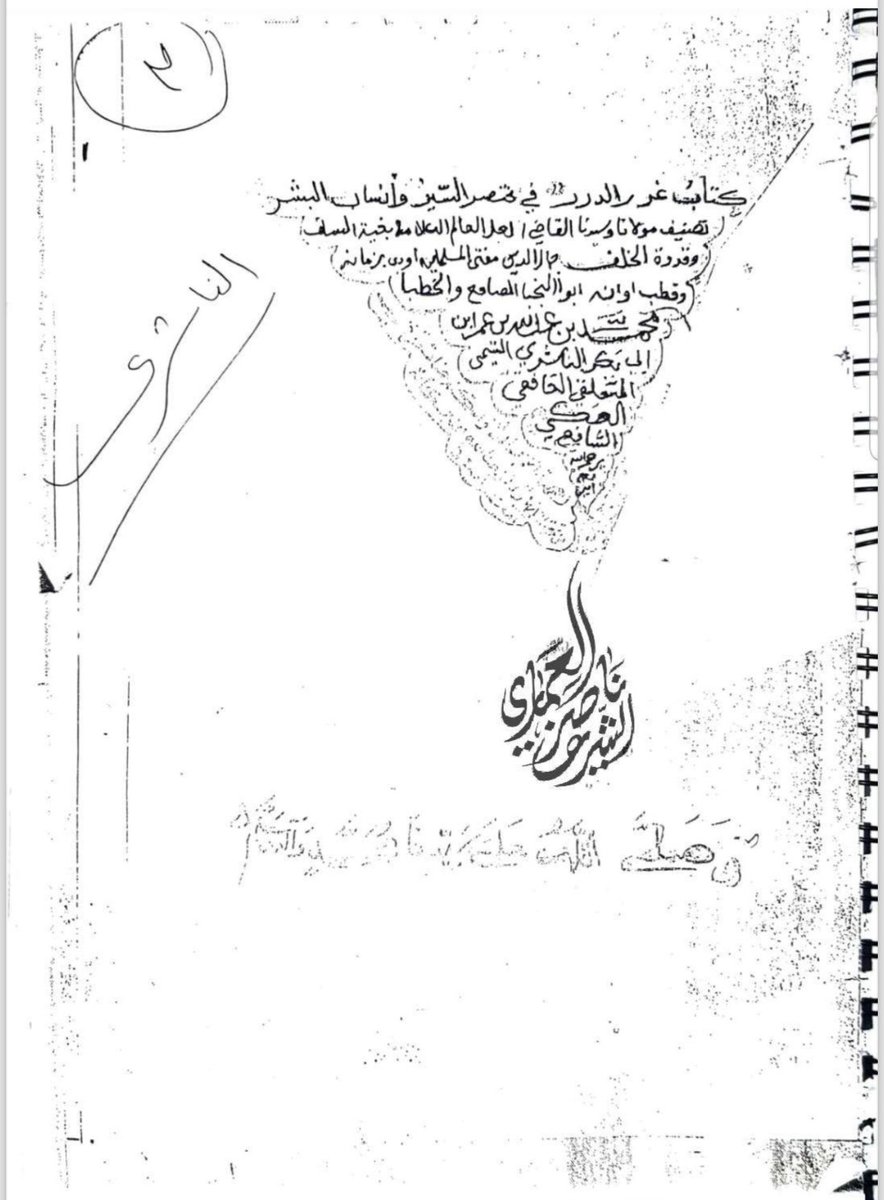 ٣
كتاب غرر الدرر في مختصر السير وأنساب البشر
تصنيف مولانا وسيدنا القاضي الاجل العالم العلامة بقية السلف
وقدوة الخلف جمال الدين مفتي المسلمين اوحد زمانه
وقطب اوانه ابو النجبا المصاقع والخطبا
محمد بن عبد الله بن عمر ابن
ابي بكر الناشري التيمي
الغافقي
العكي
الشافعي
رحمه الله
الناشري
الشيخ ناصر العماري
وصلى الله على سيدنا محمد وسلم